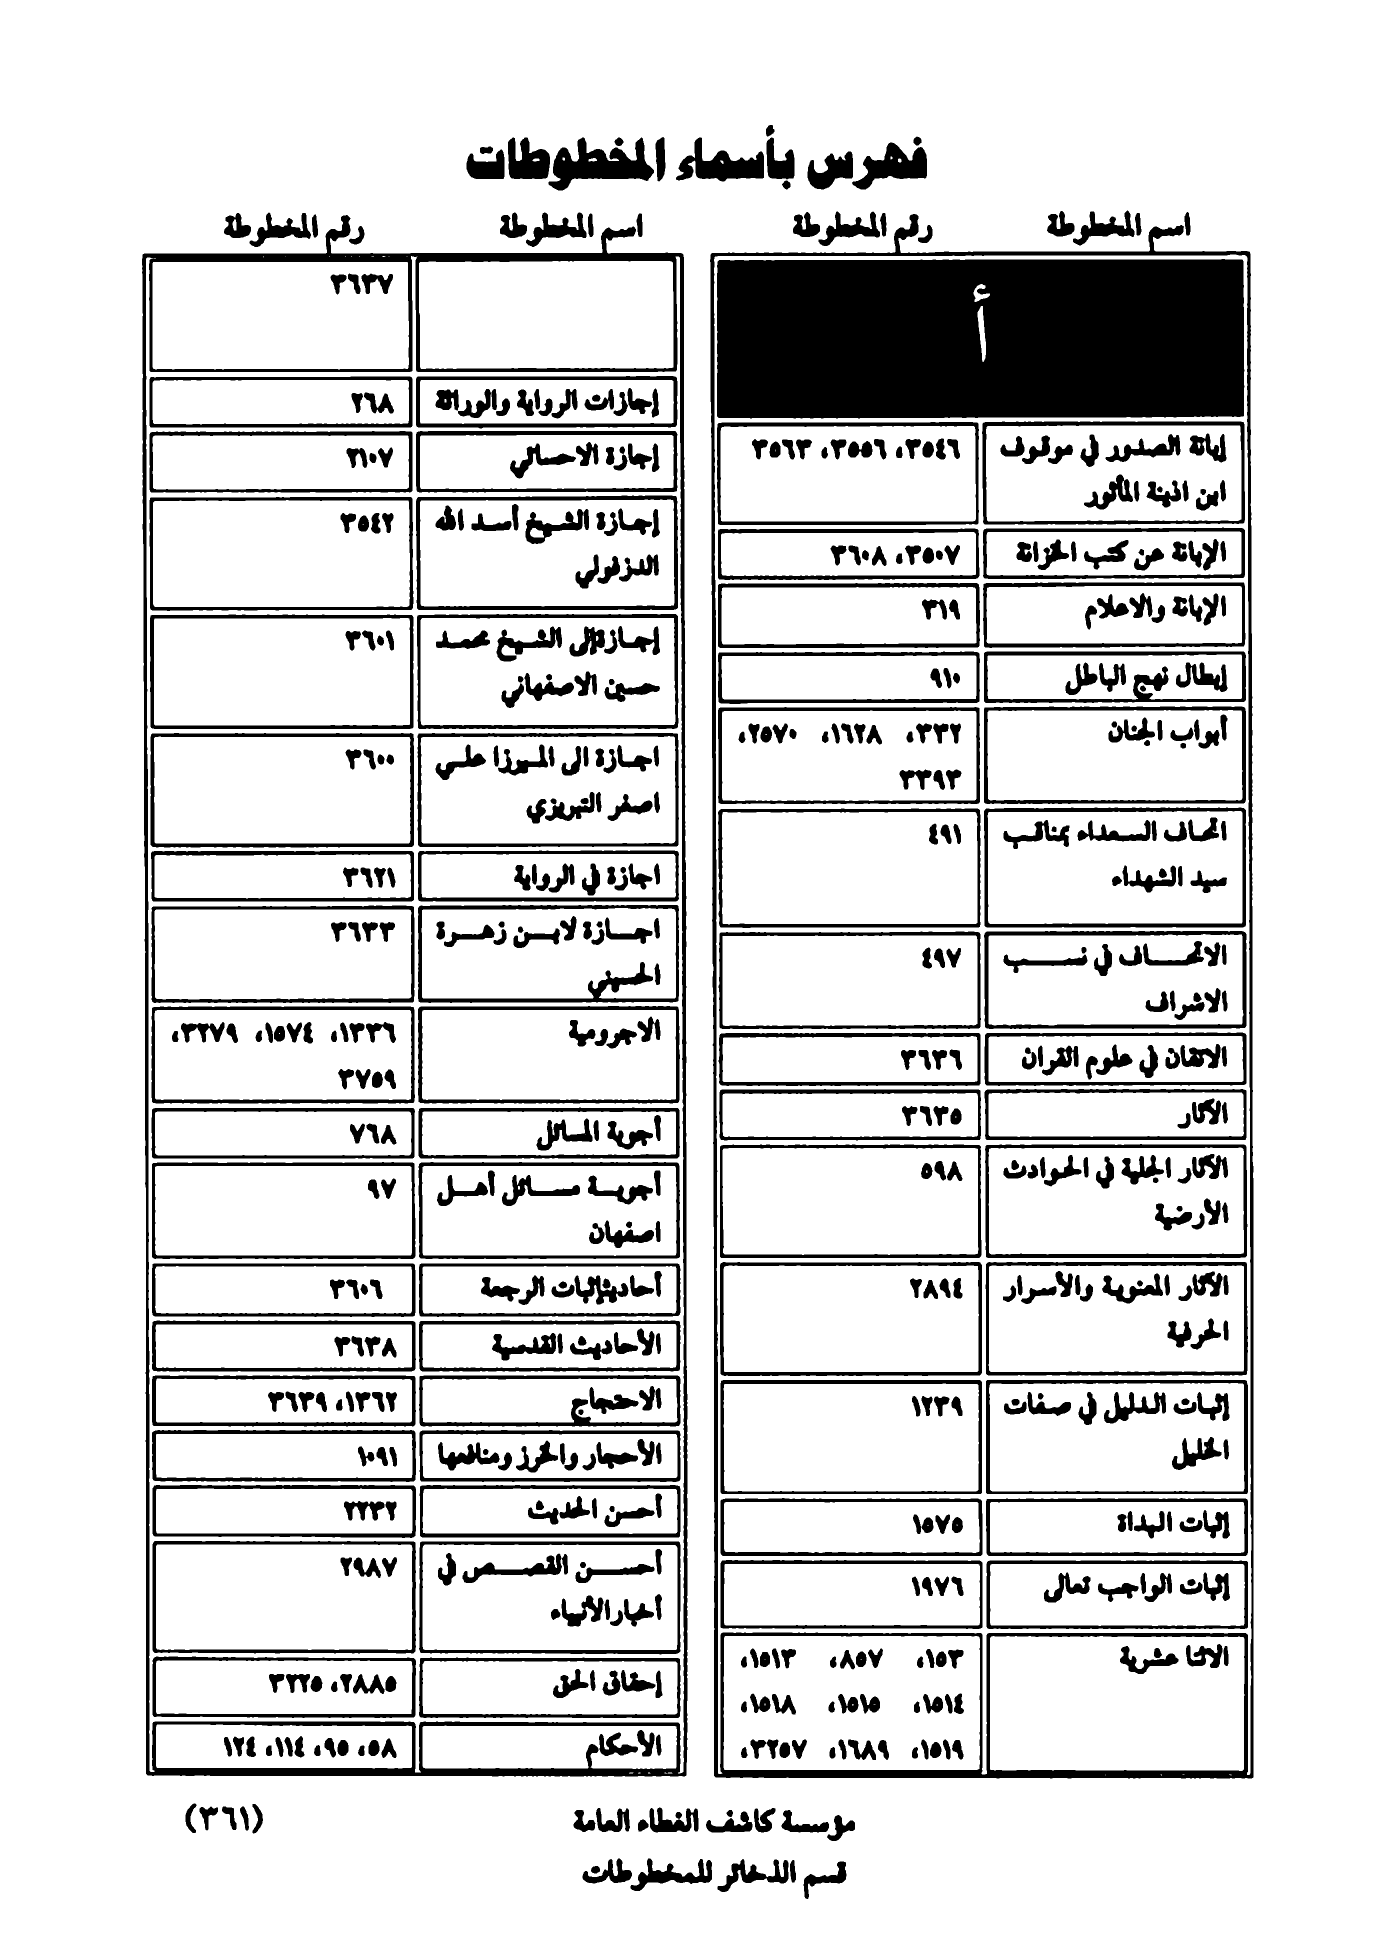 فهرس بأسماء المخطوطات
اسم المخطوطة رقم المخطوطة
أ
إبانة الصدور في موقوف ٣٥٤٦، ٣٥٥٦، ٣٥٦٣
ابن اذينة المأثور
الإبانة عن كتب الخزانة ٣٥٠٧، ٣٦٠٨
الإبانة والاعلام ٣١٩
إبطال نهج الباطل ٩١٠
أبواب الجنان ٣٣٢، ١٦٢٨، ٢٥٧٠،
٣٣٩٣
اتحاف السعداء بمناقب ٤٩١
سيد الشهداء
الاتحاف في نسب ٤٩٧
الاشراف
الاتقان في علوم القران ٣٦٣٦
الآثار ٣٦٣٥
الآثار الجلية في الحوادث ٥٩٨
الأرضية
الآثار المعنوية والأسرار ٢٨٩٤
الحرفية
إثبات الدليل في صفات ١٢٣٩
الخليل
إثبات البداة ١٥٧٥
إثبات الواجب تعالى ١٩٧٦
الاثنا عشرية ١٥٣، ٨٥٧، ١٥١٣،
١٥١٤، ١٥١٥، ١٥١٨،
١٥١٩، ١٦٨٩، ٣٢٥٧،
اسم المخطوطة رقم المخطوطة
٣٦٣٧
إجازات الرواية والوراثة ٢٦٨
إجازة الاحسائي ٢١٠٧
إجازة الشيخ أسد الله ٣٥٤٢
الدزفولي
إجازةإلى الشيخ محمد ٣٦٠١
حسين الاصفهاني
اجازة الى الميرزا علي ٣٦٠٠
اصغر التبريزي
اجازة في الرواية ٣٦٢١
اجازة لابن زهرة ٣٦٣٣
الحسيني
الاجرومية ١٣٣٦، ١٥٧٤، ٣٢٧٩،
٣٧٥٩
أجوبة المسائل ٧٦٨
أجوبة مسائل أهل ٩٧
اصفهان
أحاديثإثبات الرجعة ٣٦٠٦
الأحاديث القدسية ٣٦٣٨
الاحتجاج ١٣٦٢، ٣٦٣٩
الأحجار والخرز ومنافعها ١٠٩١
أحسن الحديث ٢٢٣٢
أحسن القصص في ٢٩٨٧
أخبارالأنبياء
إحقاق الحق ٢٨٨٥، ٣٢٢٥
الأحكام ٥٨، ٩٥، ١١٤، ١٢٤
مؤسسة كاشف الغطاء العامة (٣٦١)
قسم الذخائر للمخطوطات